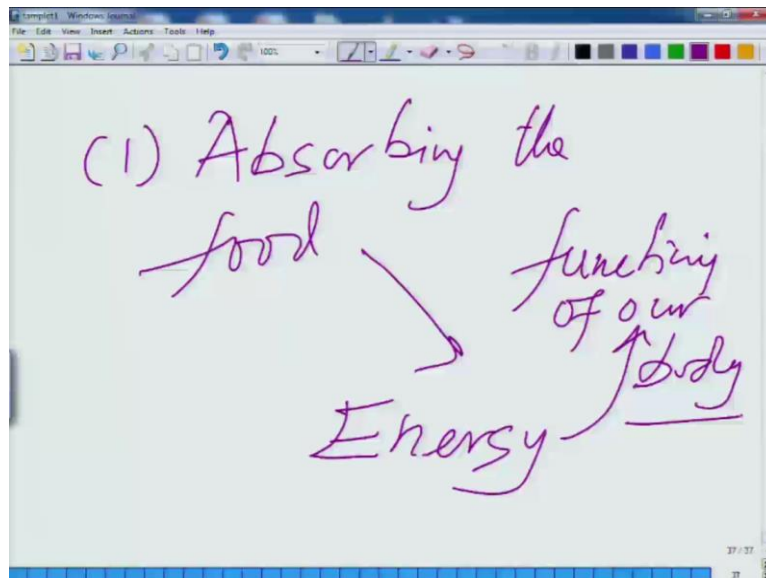 tamplet1 Windows Journal
File Edit View Insert Actions Tools Help
100%
(1) Absorbing the
food
functing
of our
body
Energy
37 / 37
37